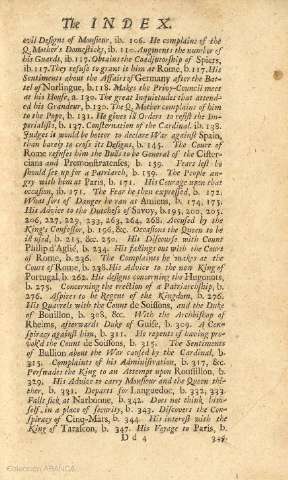 The INDEX.
evil Designs of Monsieur, ib. 106. He complains of the
Q. Mother's Domesticks, ib. 110. Augments the number of
his Guards, ib. 117. Obtains the Coadjutorship of Spiers,
ib. 117. They refuse to grant it him at Rome, b. 117. His
Sentiments about the Affairs of Germany after the Bat-
tel of Norlingue, b. 118. Makes the Privy-Council meet
at his House, a. 130. The great Inquietudes that attend-
ed his Grandeur, b. 130. The Q. Mother complains of him
to the Pope, b. 131. He gives is Orders to resist the Im-
perialists, b. 137. Consternation of the Cardinal. ib. 138.
Judges it would be better to declare War against Spain,
than barely to cross its Designs, b. 145. The Court of
Rome refuses him the Bulls to be General of the Cister-
cians and Premonstratenses, b. 159. Fears lest he
should set up for a Patriarch, b. 159. The People an-
gry with him at Paris, b. 171. His Courage upon that
occasion, ib. 171. The Fear he then expressed, b. 171.
What sort of Danger he ran at Amiens, b. 174, 175.
His Advice to the Dutchess of Savoy, b. 195, 200, 205,
206, 227, 229, 233, 263, 264, 268. Accused by the
King's Confessor, b. 196, &c. Occasions the Queen to be
ill used, b. 215, &c. 250. His Discourse with Count
Philip d'Aglié, b. 234. His fallings out with the Court
of Rome, b. 236. The Complaints he makes at the
Court of Rome, b. 238. His Advice to the new King of
Portugal, b. 262. His designs concerning the Hugonots,
b. 275. Concerning the erection of a Patriarchship, b.
276. Aspires to be Regent of the Kingdom, b. 276.
His Quarrels with the Count de Soissons, and the Duke
of Bouillon, b. 308, &c. With the Archbishop of
Rheims, afterwards Duke of Guise, b. 309. A Con-
spiracy against him, b. 311. He repents of having pro-
vok'd the Count de Soissons, b. 315. The Sentiments
of Bullion about the War caused by the Cardinal, b.
315. Complaints of his Administration, b. 317, &c.
Perswades the King to an Attempt upon Roussillon, b.
329. His Advice to carry Monsieur and the Queen thi-
ther, b. 331. Departs for Languedoc, b. 332, 333.
Falls sick at Narbonne, b. 342. Does not think him-
self, in a place of security, b. 343. Discovers the Con-
spiracy of Cinq-Mars, b. 344. His interest with the
King of Tarascon, b. 347. His Voyage to Paris, b.
D d 4
Colección ABANCA